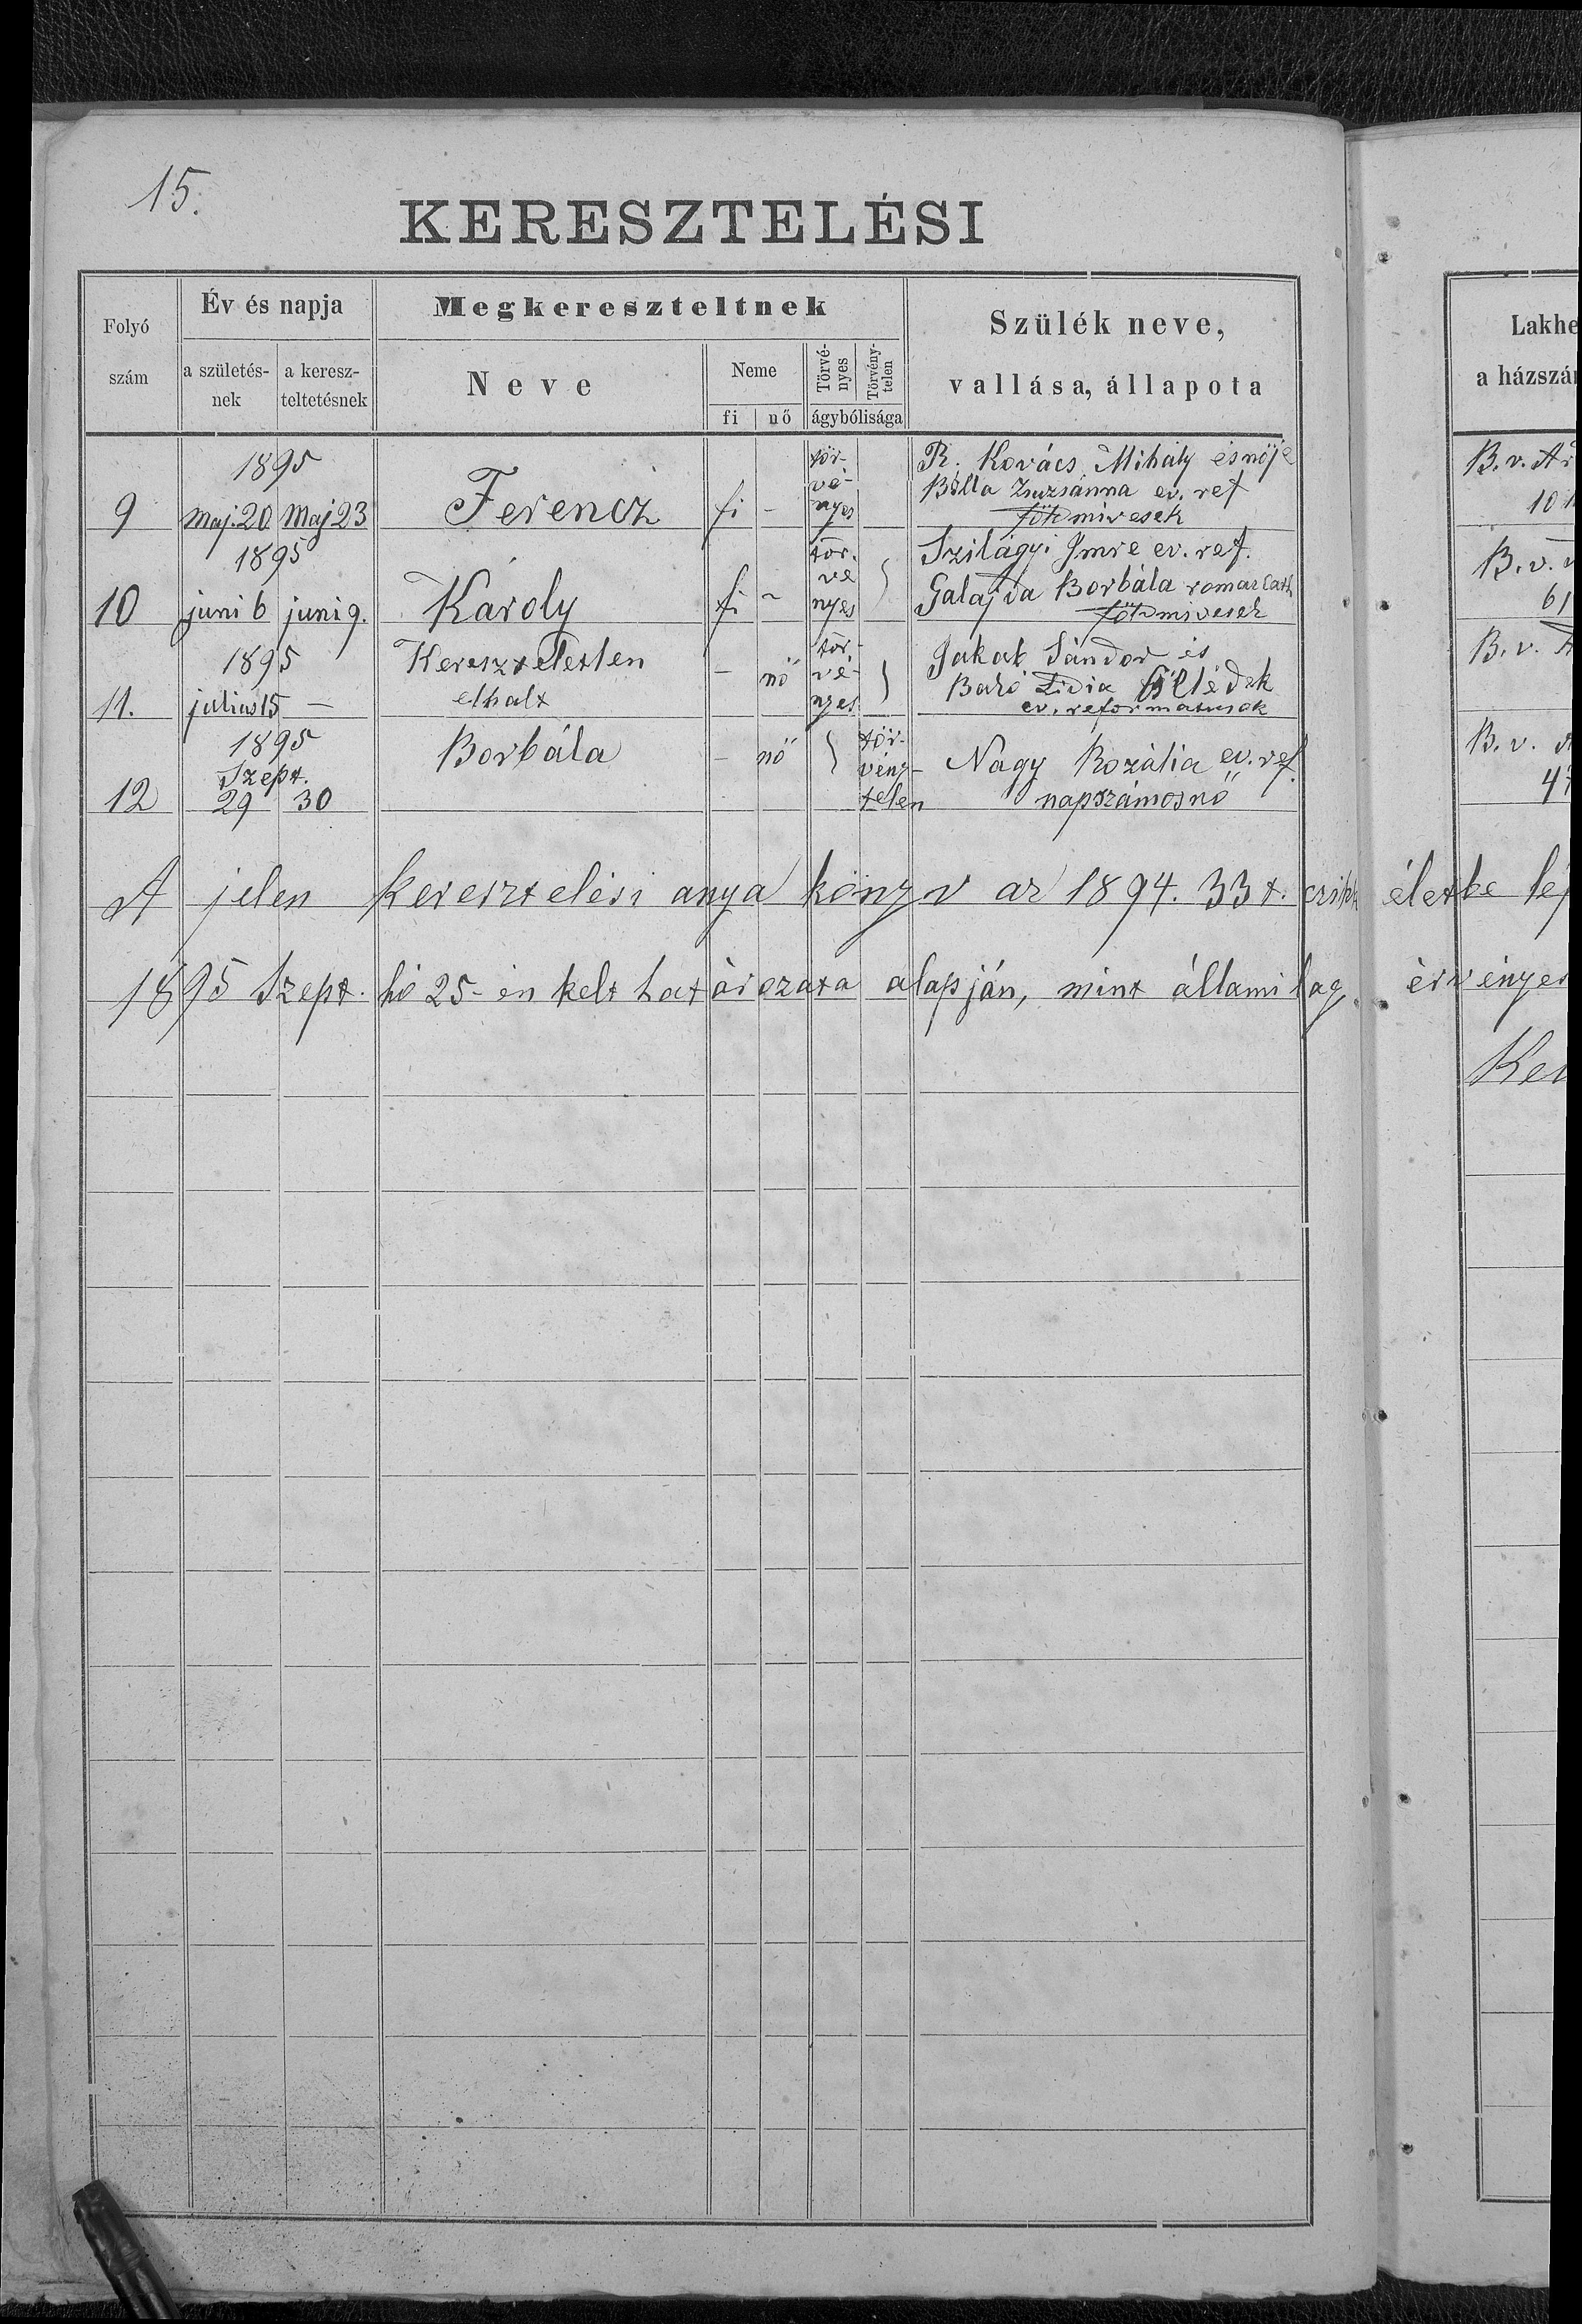 15.
KERESZTELÉSI
Folyó szám
Év és napja
a születés-nek
a keresz-teltetésnek
Megkereszteltnek
Neve
Neme
fi
nő
Törvé-nyes
Törvény-telen
ágybólisága
Szülék neve,
vallása, állapota
Lakhe
a házszá
1895
9 Maj. 20 Maj 23 Ferencz fi - tör-vé-nyes
R. Kovács Mihály és nője
Bolla Zsuzsánna ev. ref
földmivesek
B. v.
10
1895
10 juni 6 juni 9. Károly fi - tör-vé nyes
Szilágyi Imre ev. ref.
Galajda Borbála romai cath
földmivesek
B. v.
61
1895
11. julius 15 — Kereszteletlen
elhalt
- nő tör-vé-nyes
Jakab Sándor és
Bató Lidia cselédek
ev. reformatusok
B. v.
1895
Szept.
12 29 30 Borbála - nő tör-vény-telen
Nagy Rozália ev. ref.
napszámosnő
B. v.
4
A jelen keresztelési anya könyv az 1894. 33 t. czikk életbe lé
1895 Szept. hó 25-én kelt határozata alapján, mint államilag érvényes
Ke